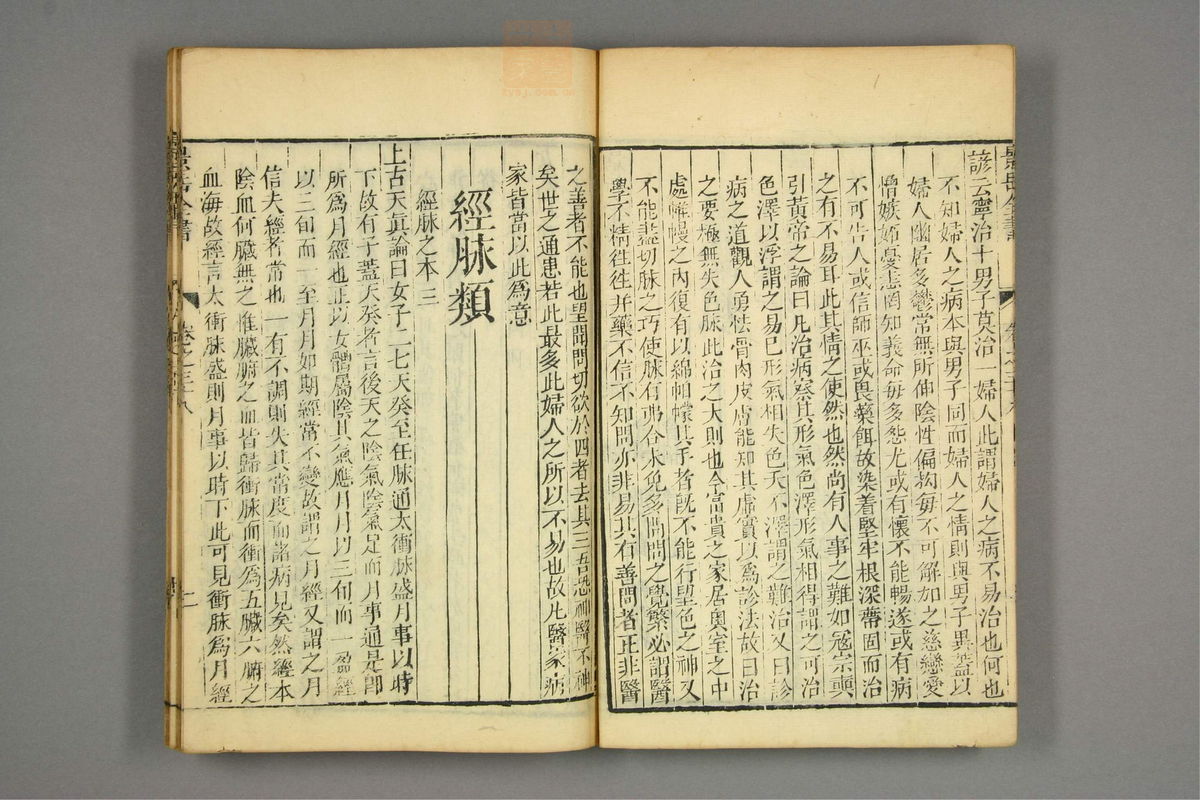 諺云寧治十男子莫治一婦人此謂婦人之病不易治也何也
不知婦人之病本與男子同而婦人之情則與男子異蓋以
婦人幽居多鬱常無所伸陰性偏拗每不可解加之慈戀愛
憎嫉妒憂恚罔知義命每多怨尤或有懷不能暢遂或有病
不可告人或信師巫或畏藥餌故染着堅牢根深蒂固而治
之有不易耳此其情之使然也然尚有人事之難如寇宗奭
引黃帝之論曰凡治病察其形氣色澤形氣相得謂之可治
色澤以浮謂之易已形氣相失色夭不澤謂之難治又曰診
病之道觀人勇怯骨肉皮膚能知其虛實以為診法故曰治
之要極無失色脉此治之大則也今富貴之家居奥室之中
處帷幔之內復有以綿帕幪其手者既不能行望色之神又
不能盡切脉之巧使脉有弗合未免多問問之覺繁必謂醫
學不精往往并藥不信不知問亦非易其有善問者正非醫
之善者不能也望聞問切欲於四者去其三吾恐神醫不神
矣世之通患若此最多此婦人之所以不易也故凡醫家病
家皆當以此爲意
經脉類
經脉之本 三
上古天眞論曰女子二七天癸至任脉通太衝脉盛月事以時
下故有子蓋天癸者言後天之陰氣陰氣足而月事通是即
所爲月經也正以女體屬陰其氣應月月以三旬而一盈經
以三旬而一至月月如期經常不變故謂之月經又謂之月
信夫經者常也一有不調則失其常度而諸病見矣然經本
陰血何臟無之惟臟腑之血皆歸衝脉而衝爲五臟六腑之
血海故經言太衝脉盛則月事以時下此可見衝脉爲月經
景岳全書
卷之三十八
二